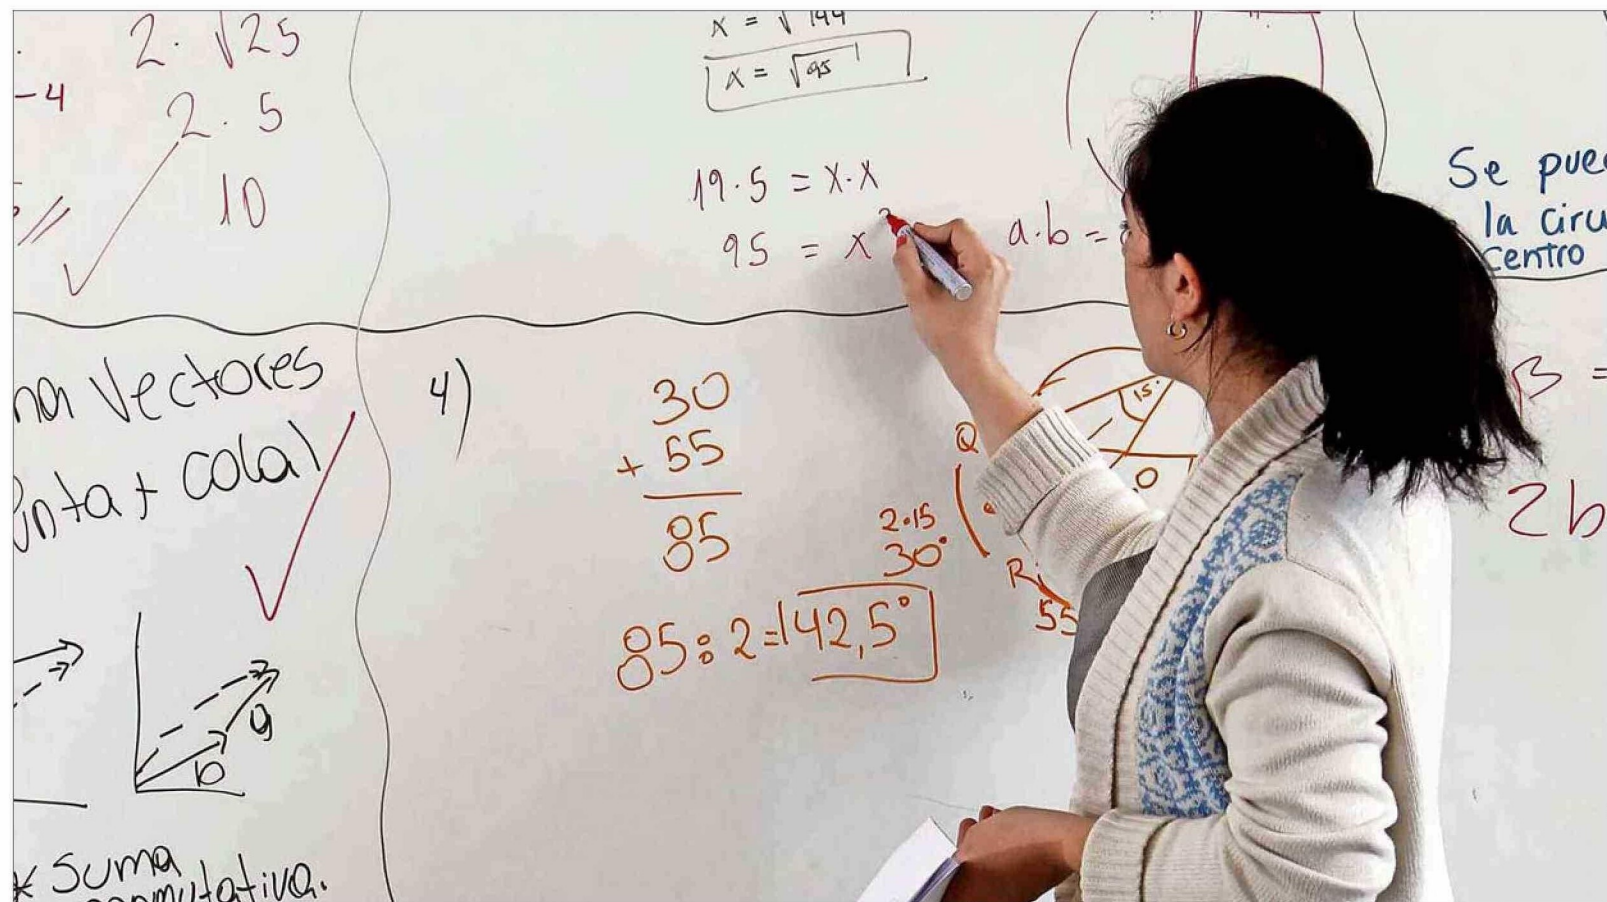 2·√25
-4
2·5
10
x = √144
x = √95
19·5 = x·x
95 = x²
a·b =
Se
la
centro
Vectores
colal
4)
30
+ 55
85
85:2=42,5°
2·15
30°
Q
15°
O
R
55
b
a
B =
2b
* Suma
conmutativa.